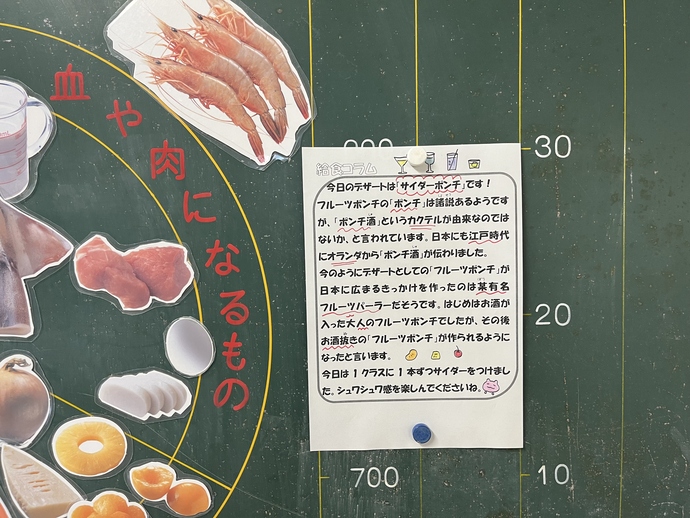 血や肉になるもの
30
給食コラム
今日のデザートは「サイダーポンチ」です！
フルーツポンチの「ポンチ」は諸説あるようです
が、「ポンチ酒」というカクテルが由来なのでは
ないか、と言われています。日本にも江戸時代
にオランダから「ポンチ酒」が伝わりました。
今のようにデザートとしての「フルーツポンチ」が
日本に広まるきっかけを作ったのは某有名
フルーツパーラーだそうです。はじめはお酒が
入った大人のフルーツポンチでしたが、その後
お酒抜きの「フルーツポンチ」が作られるように
なったと言います。
今日は１クラスに１本ずつサイダーをつけまし
た。シュワシュワ感を楽しんでくださいね。
20
700
10